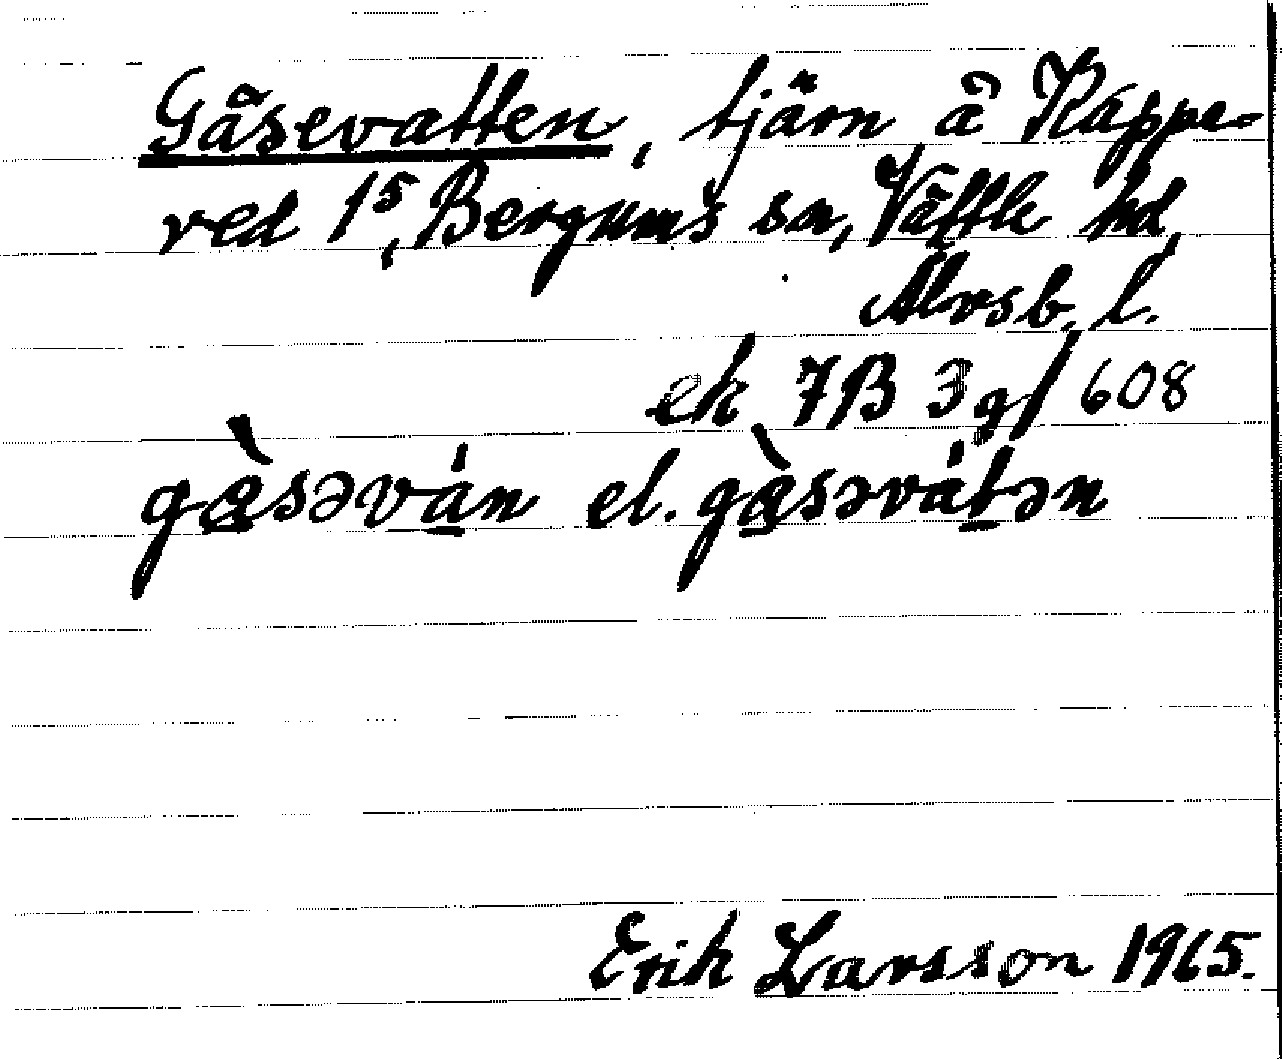 Gåsevatten, tjärn å Kappe-
red 1⁵, Bergums sn, Vättle hd,
Älvsb. l.
ek 7B 3g/608
gàsəván el. gàsəvátən
Erik Larsson 1965.